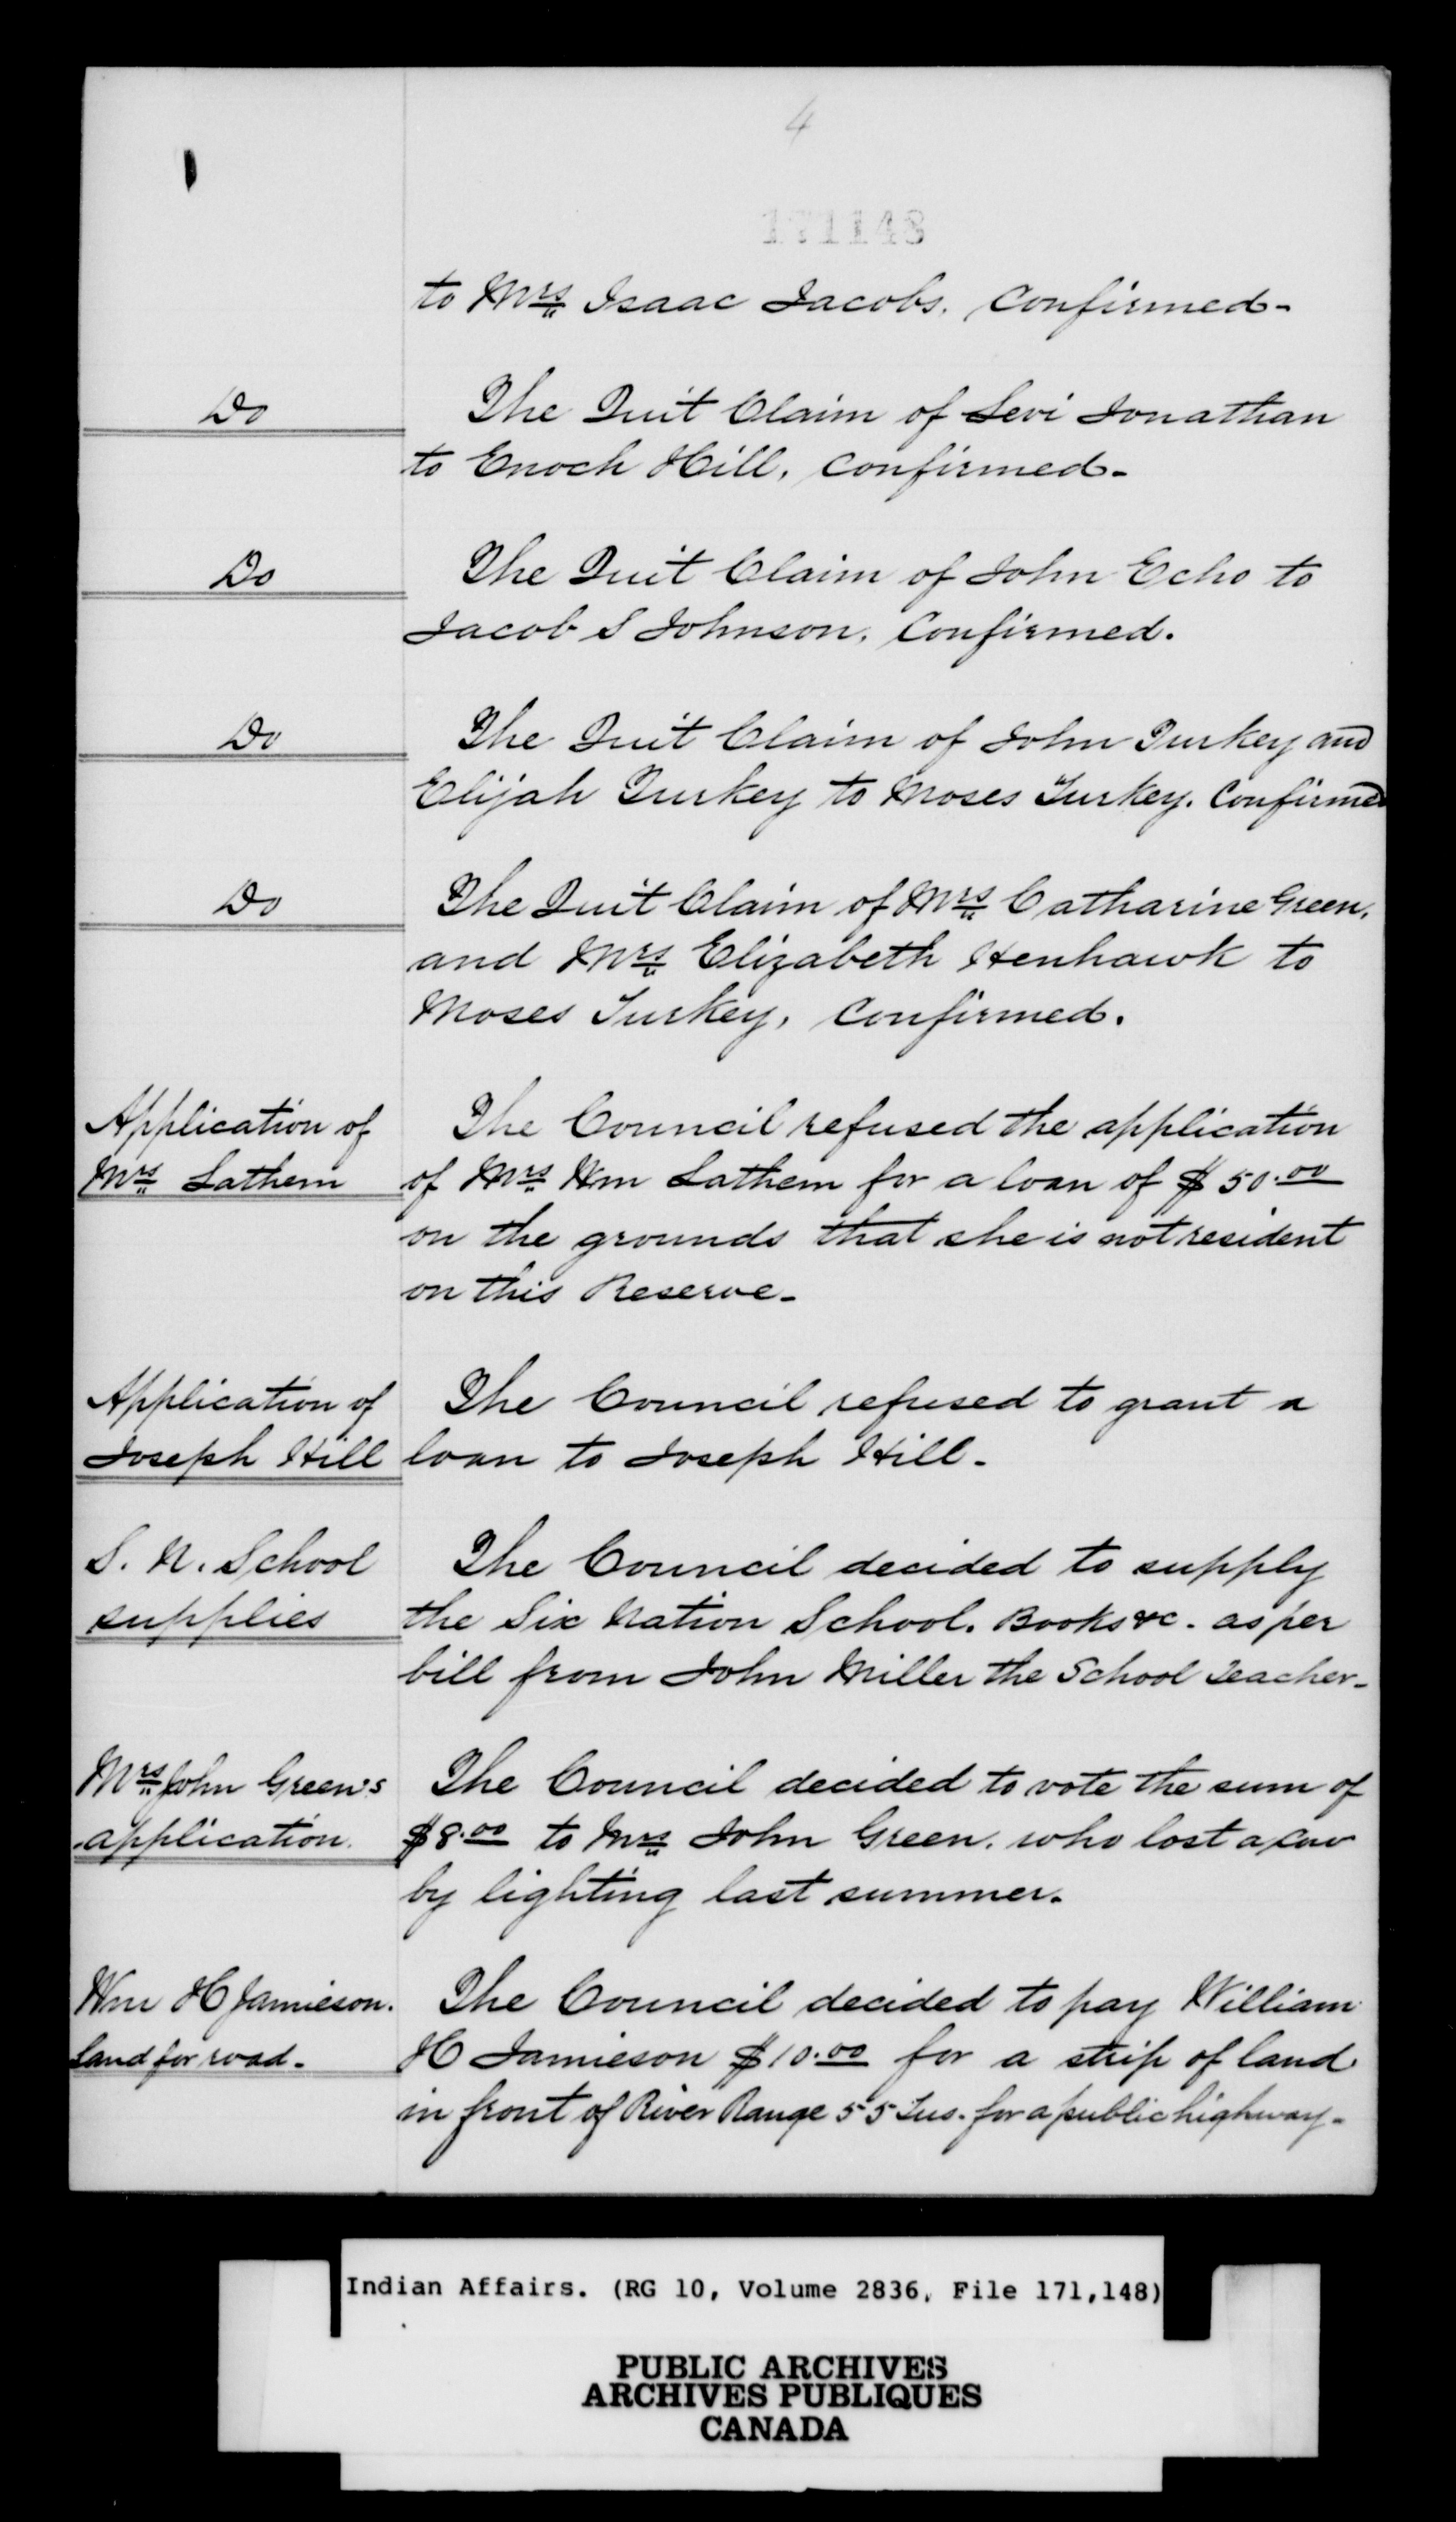 4
171148
to Mrs Isaac Jacobs. Confirmed-
Do
The Quit Claim of Levi Jonathan
to Enoch Hill, Confirmed-
Do
The Quit Claim of John Echo to
Jacob S Johnson, Confirmed.
Do
The Quit Claim of John Turkey and
Elijah Turkey to Moses Turkey. Confirmed
Do
The Quit Claim of Mrs Catharine Green,
and Mrs Elizabeth Henhawk to
Moses Turkey, Confirmed.
Application of
Mrs Lathem
The Council refused the application
of Mrs Wm Lathem for a loan of $50.00
on the grounds that she is not resident
on this Reserve-
Application of
Joseph Hill
The Council refused to grant a
loan to Joseph Hill-
S. N. School
supplies
The Council decided to supply
the Six Nation School. Books &c. as per
bill from John Miller the School Teacher-
Mrs John Green's
application.
The Council decided to vote the sum of
$8.00 to Mrs John Green. who lost a cow
by lighting last summer.
Wm H Jamieson.
Land for road-
The Council decided to pay William
H Jamieson $10.00 for a strip of land
in front of River Range 55 Tus. for a public highway-
Indian Affairs. (RG 10, Volume 2836, File 171,148)
PUBLIC ARCHIVES
ARCHIVES PUBLIQUES
CANADA